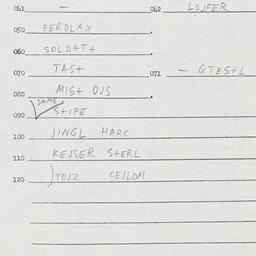 041 – 042 LOJFER
050 FERDLAX
060 SOLDAT+
070 TAS+ 071 – GTES+L
080 MIS+ OJS
DAME
090 S+IPE
100 JINGL HARC
110 KEJSER S+ERL
120